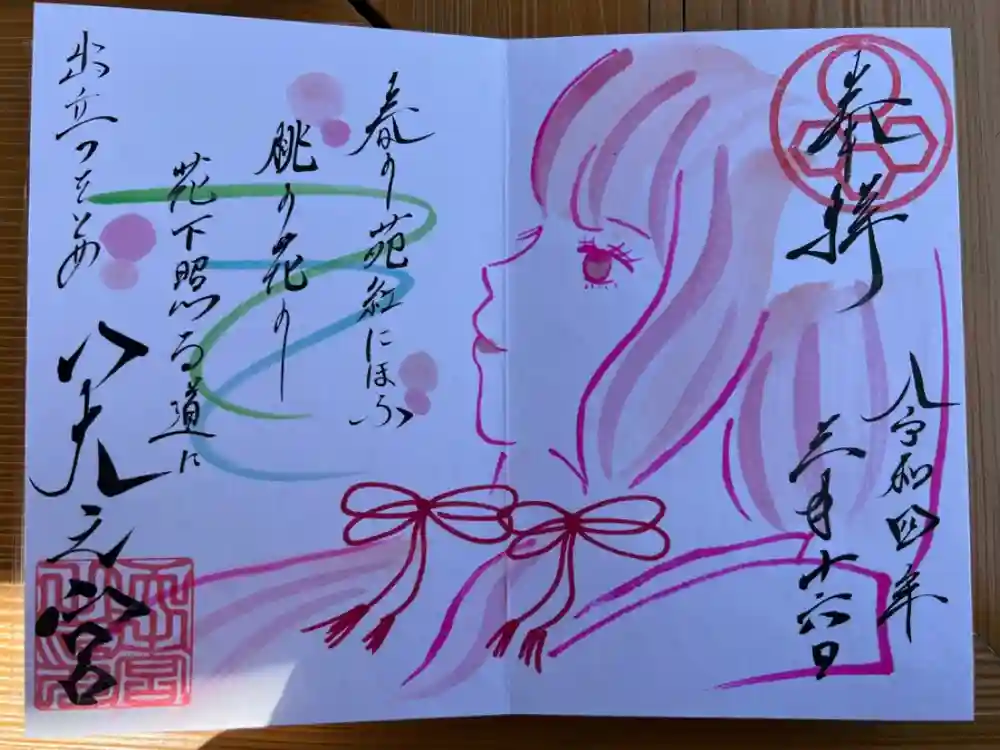 奉拝
令和四年
三月十六日
春の苑紅にほふ
桃の花の
花下照る道に
出立つをとめ
八光之宮